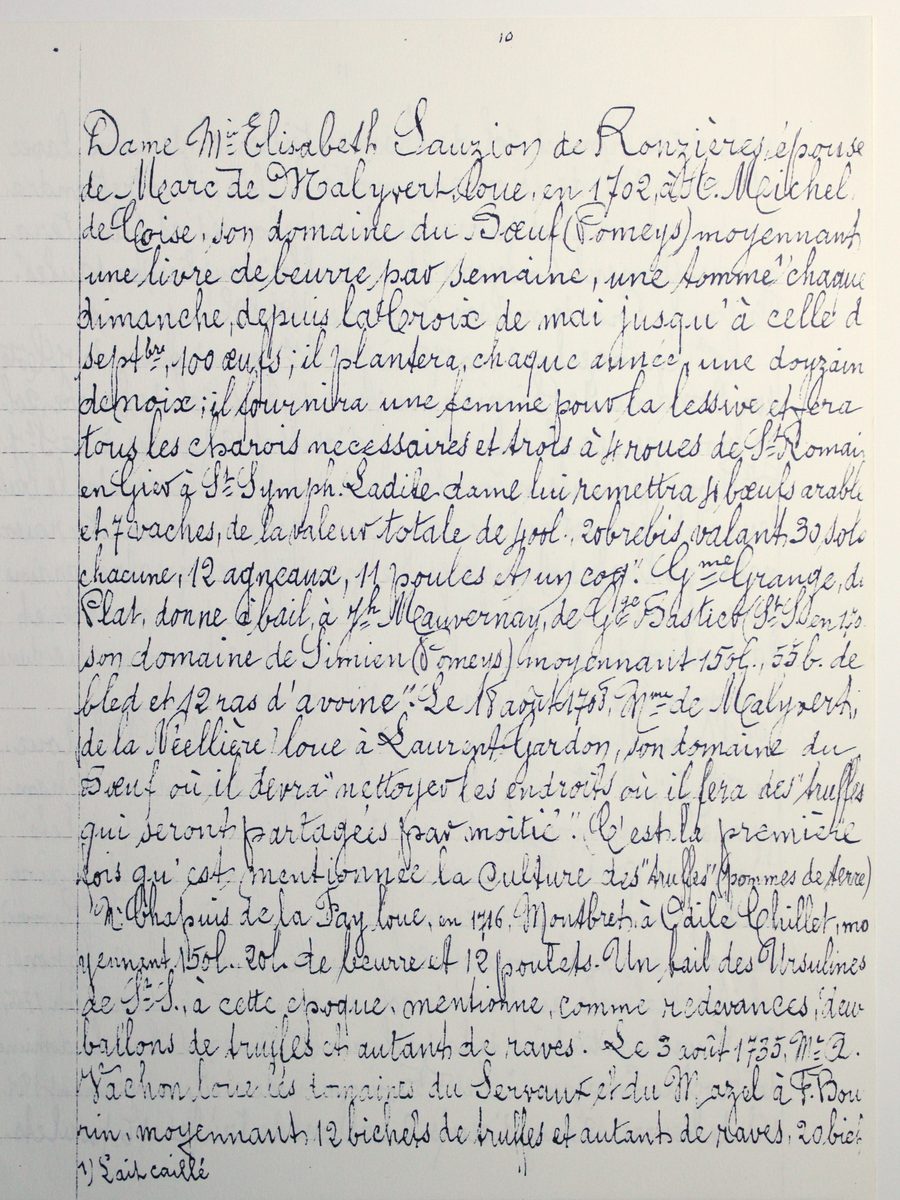 10
Dame Mie Elisabeth Lauzion de Ronzières, épouse
de Marc de Malyvert, loue, en 1702, à Me. Michel
de Coise, son domaine du Bœuf (Pomeys) moyennant
une livre de beurre par semaine, une tomme¹⁾ chaque
dimanche, depuis la Croix de mai jusqu'à celle d
septbre, 100 œufs ; il plantera, chaque année, une douzain
de noix ; il fournira une femme pour la lessive et fera
tous les charois necessaires et trois à 4 roues de St Romai
en Gier à St Symph. Ladite dame lui remettra 4 bœufs arable
et 7 vaches, de la valeur totale de 400l., 20 brebis valant 30 sols
chacune, 12 agneaux, 11 poules et un coq". Gme Grange, d
Plat, donne à bail, à Jh Mauvernay, de Gde Bastie (St S) en 170
son domaine de Simien (Pomeys) moyennant 150l., 55 b. de
bled et 12 ras d'avoine". Le 18 août 1705, Mme de Malyvert,
de la Néellière, loue à Laurent Gardon, son domaine du
Bœuf où il devra "nettoyer les endroits où il fera des "truffes
qui seront partagées par moitié". C'est la première
fois qu'est mentionnée la culture des "truffes" (pommes de terre)
Mr Chapuis de la Fay loue, en 1716, Montbret, à Chillet, mo
yennant 150l. 20l. de beurre et 12 poulets. Un bail des Ursulines
de St S., à cette epoque, mentionne, comme redevances, "deux
ballons de truffes et autant de raves. Le 3 août 1735, Mr A.
Vachon loue les domaines du Servaux et du Mazel à F. Bou
rin, moyennant 12 bichets de truffes et autant de raves, 20 bich
1) Lait caillé